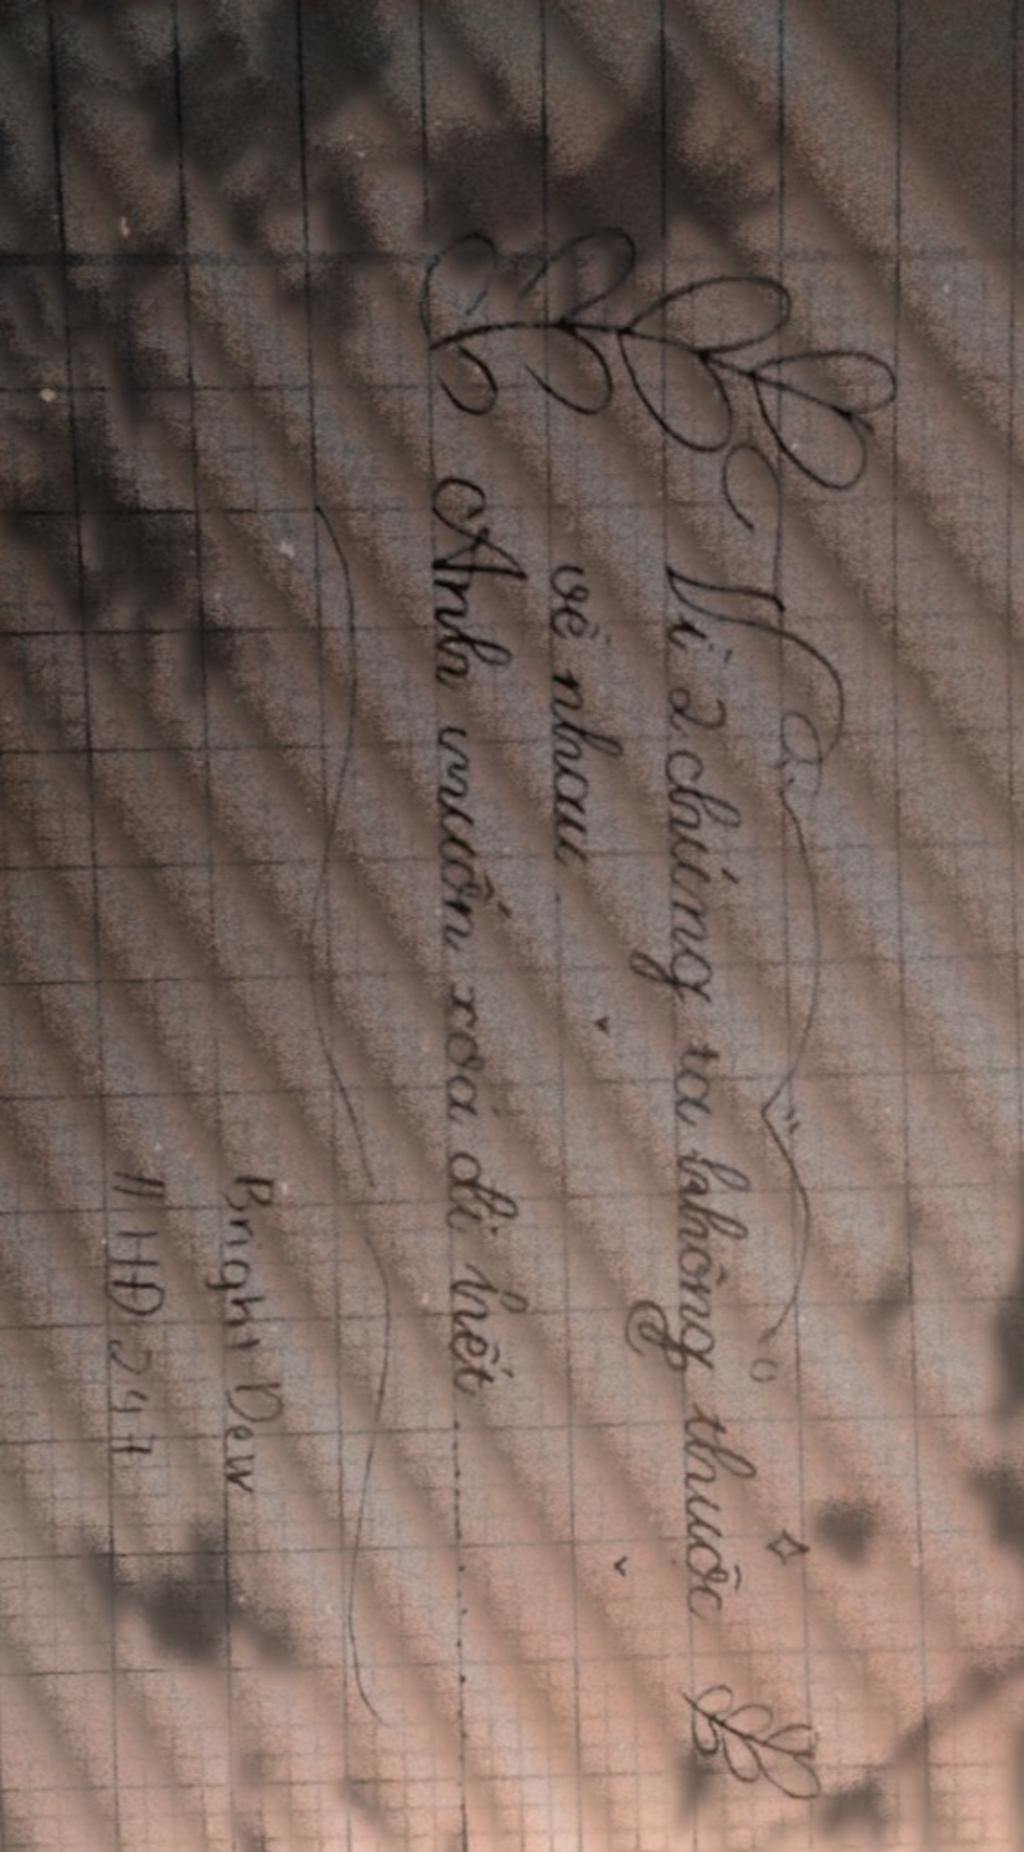 Vì 2 chúng ta không thuộc
về nhau
Anh muốn xoá đi hết........
Bright Dew
#HĐ 247